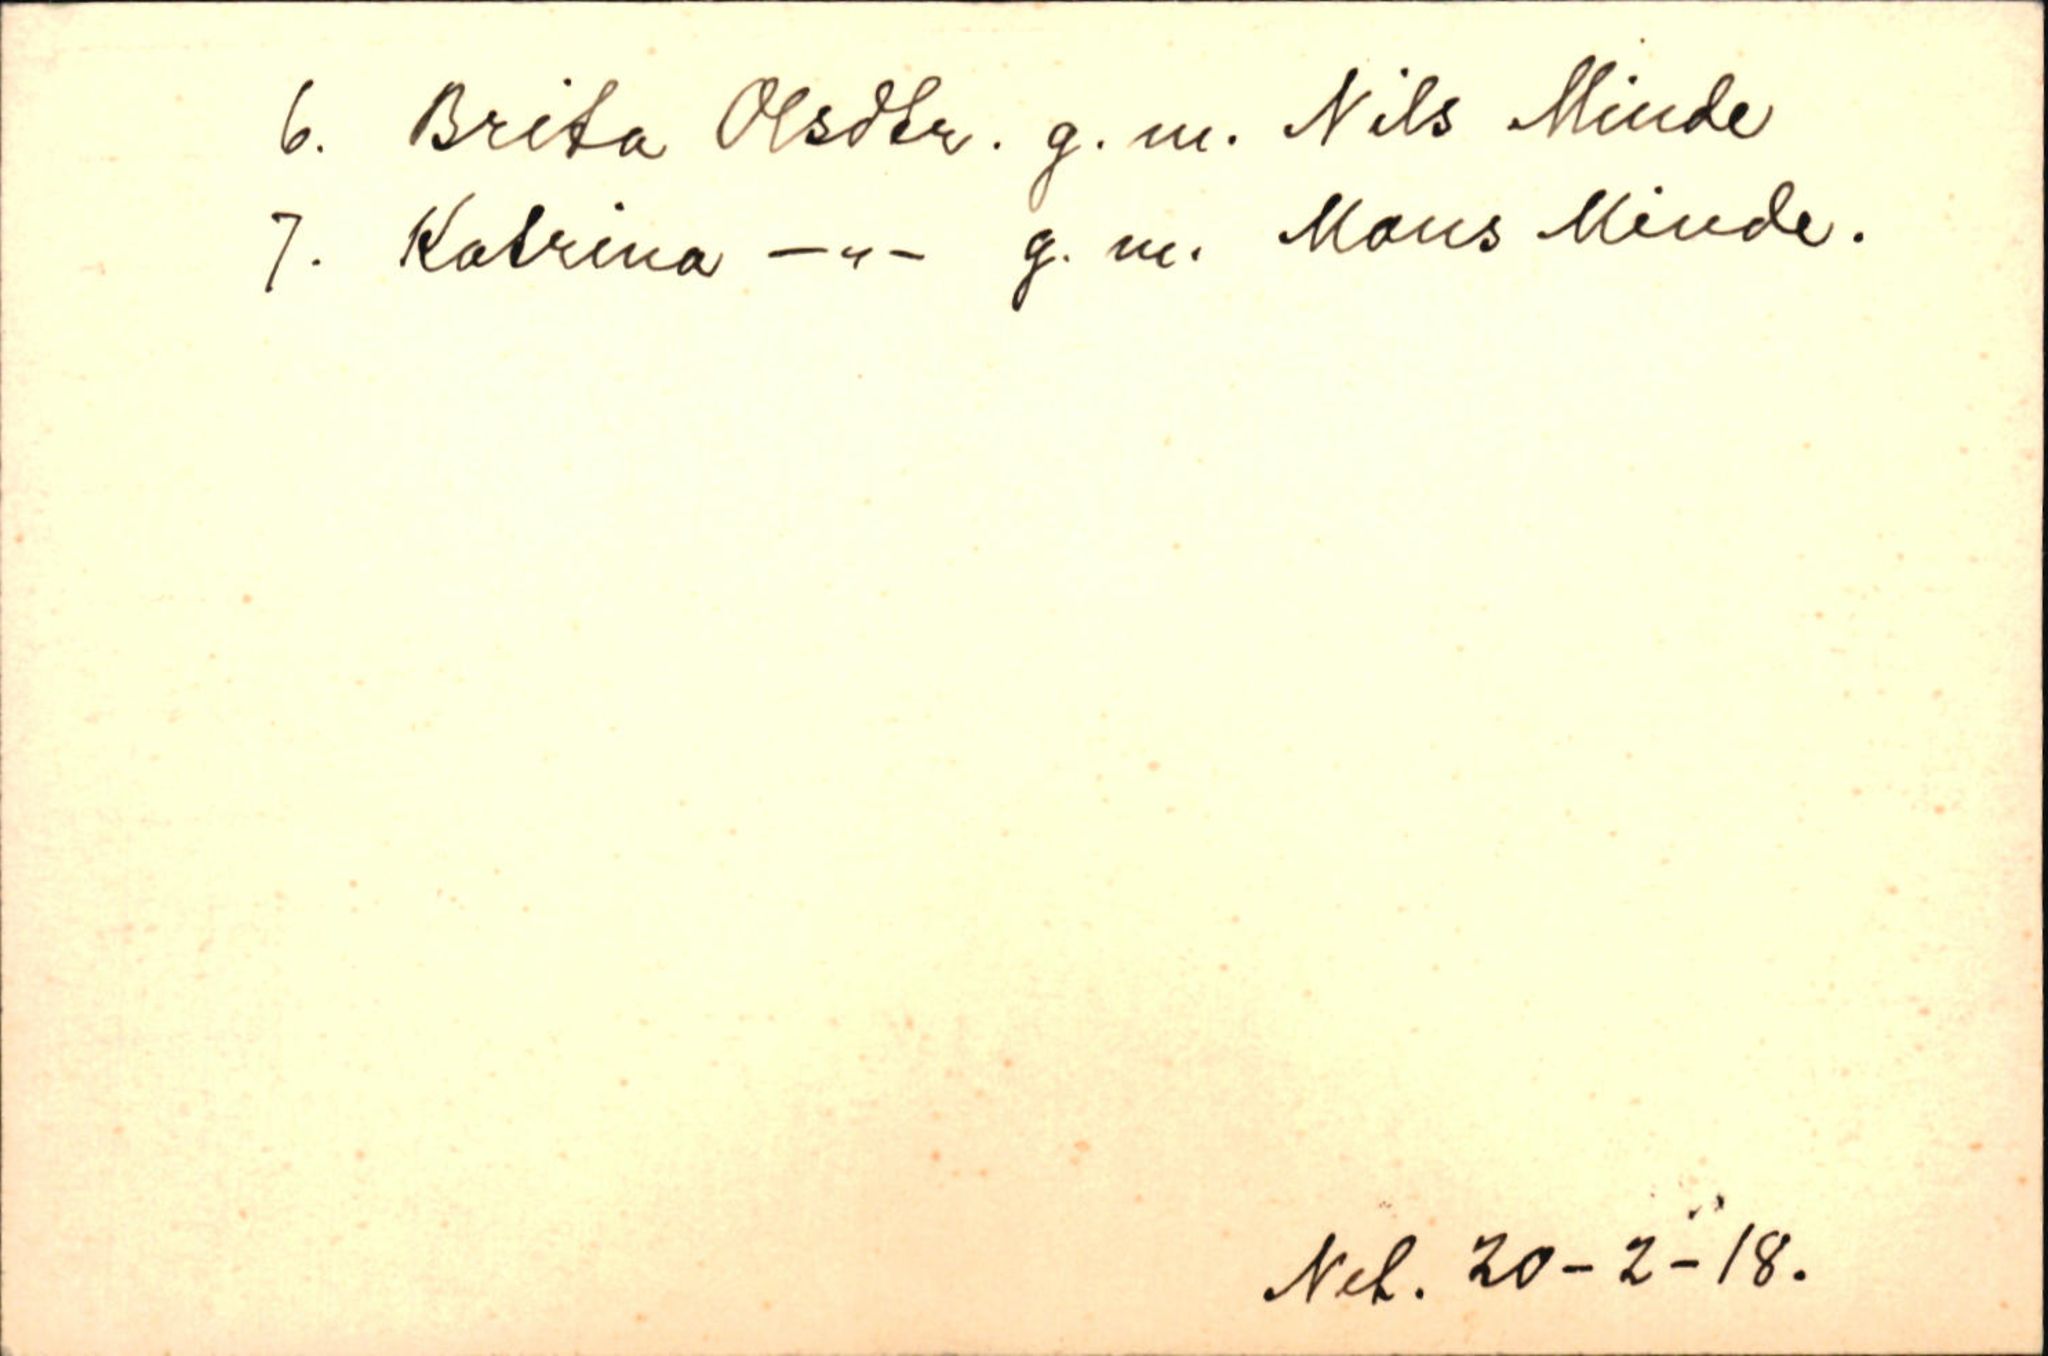 6. Brita Olsdtr. g. m. Nils Minde
7. Katrina —"— g. m. Mons Minde.
Neh. 20-2-18.